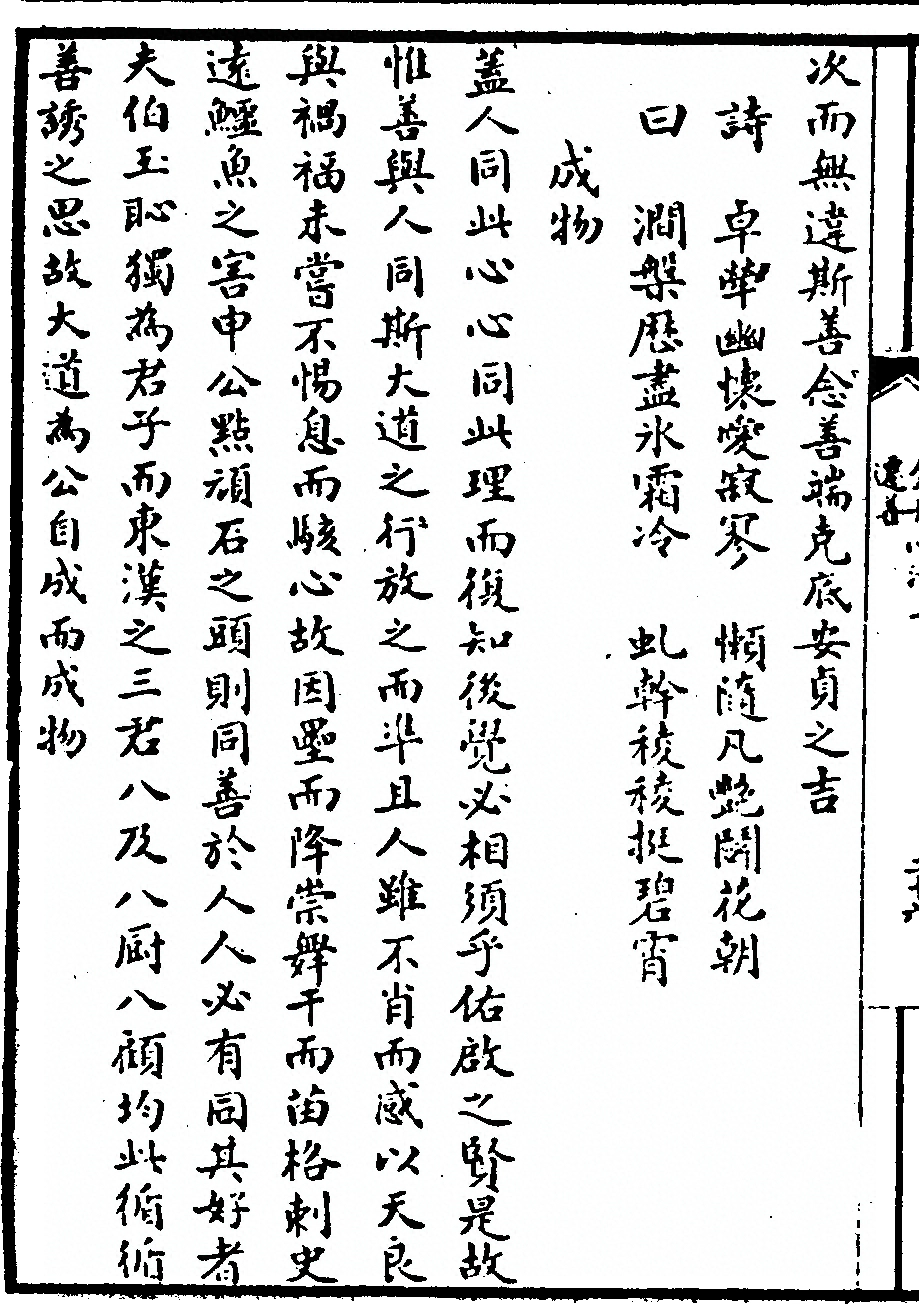 次而無違斯善念善端克底安貞之吉
詩　卓犖幽懷嘜寂寥　懶隨凡艷鬪花朝
曰　澗槃歷盡氷霜冷　虬幹稜稜挺碧霄
成物
蓋人同此心心同此理而復知後覺必相須乎佑啟之賢是故
惟善與人同斯大道之行放之而準且人雖不肖而感以天良
與禍福未嘗不惕息而駭心故因壘而降崇舞干而苗格刺史
遠鱷魚之害申公點頑石之頭則同善於人人必有同其好者
夫伯玉恥獨為君子而東漢之三君八及八厨八顧均此循循
善誘之思故大道為公自成而成物
遷善